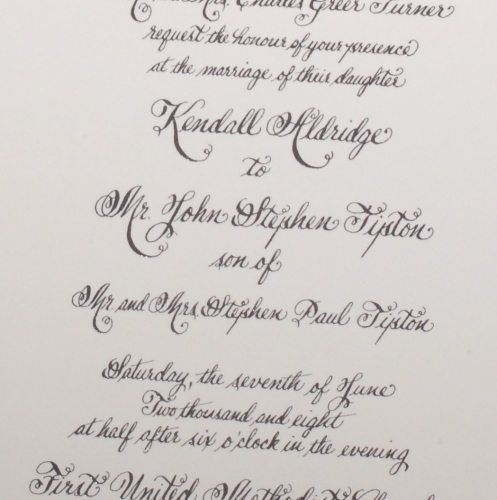 Mrs. Charles Greer Turner
request the honour of your presence
at the marriage of their daughter
Kendall Aldridge
to
Mr. John Stephen Tipton
son of
Mr. and Mrs. Stephen Paul Tipton
Saturday, the seventh of June
Two thousand and eight
at half after six o'clock in the evening
First United Methodist